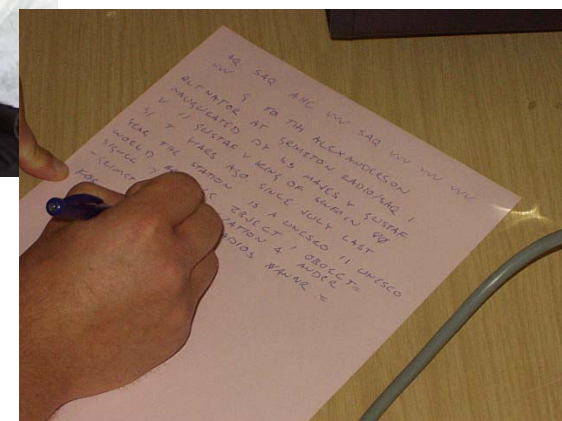 AQ SAQ AHC VVV SAQ VVV VVV VVV
VVV
S TO TH ALEXANDERSON
ALTNATOR AT GRIMETON RADIO/SAQ I
NAUGURATED BY HS MAJES Y GUSTAF
V II GUSTAF V KING OF SWEDEN
S/ T YEARS AGO SINCE JULY LAST
YEAR THE STATION IS A UNESCO II UNESCO
WORLD
SIGNCE OBJECT I OBJECT=
-GRIMET STATION & ANDER
FOR RADIOS WANNR =